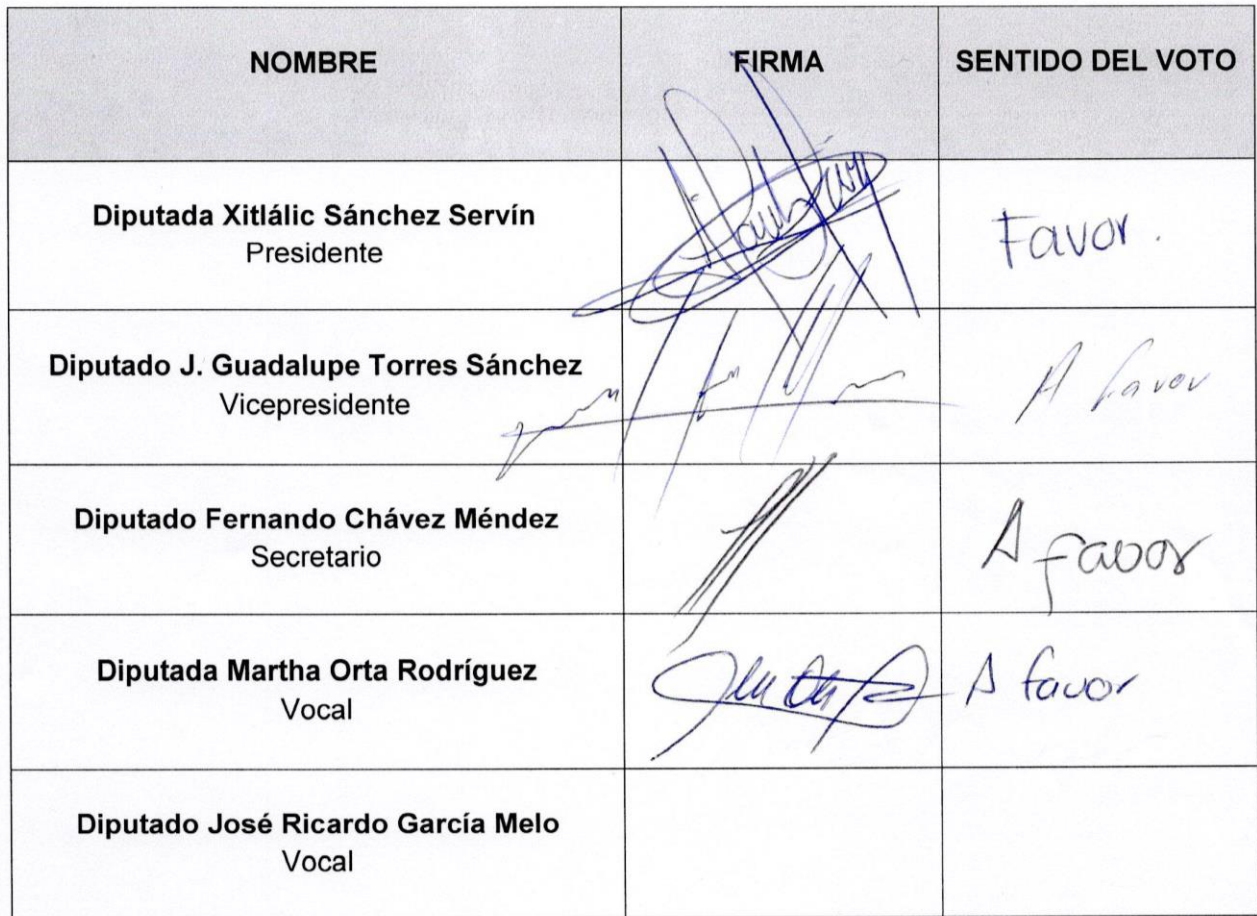 NOMBRE FIRMA SENTIDO DEL VOTO
Diputada Xitlálic Sánchez Servín
Presidente
Favor.
Diputado J. Guadalupe Torres Sánchez
Vicepresidente
A favor
Diputado Fernando Chávez Méndez
Secretario
A favor
Diputada Martha Orta Rodríguez
Vocal
A favor
Diputado José Ricardo García Melo
Vocal